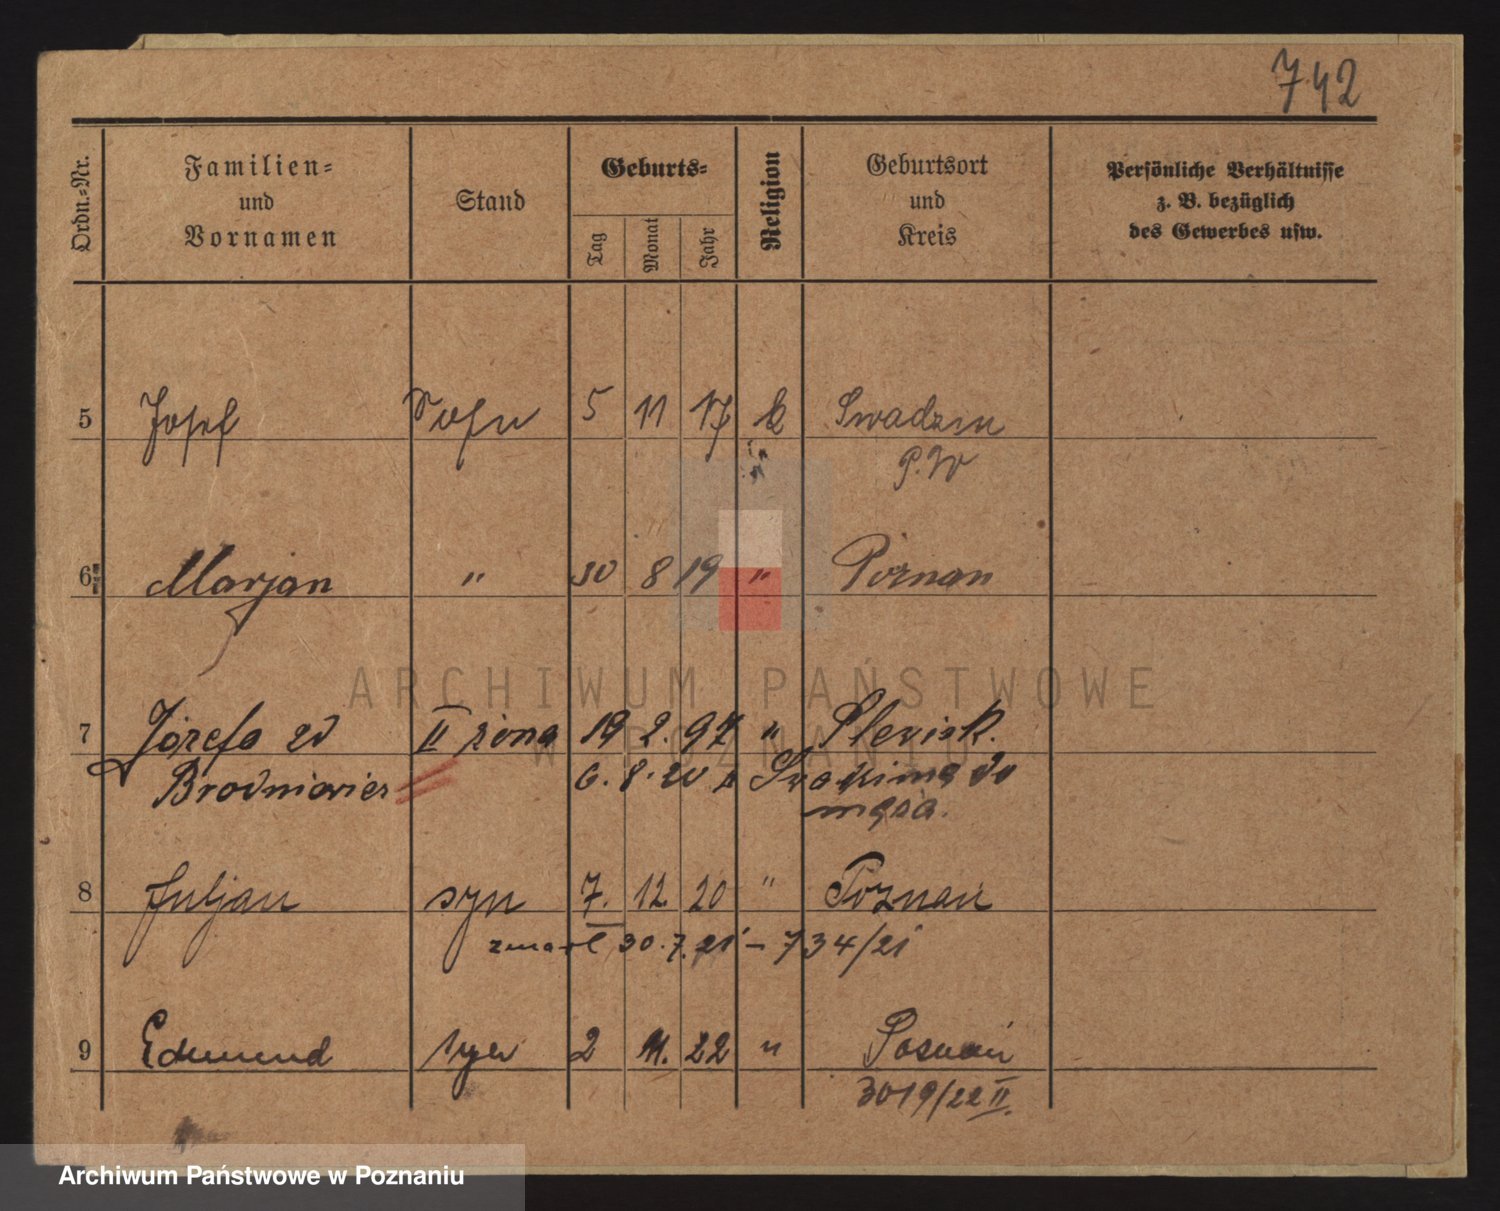 742
Ordn.-Nr.
Familien-
und
Vornamen
Stand
Geburts-
Tag
Monat
Jahr
Religion
Geburtsort
und
Kreis
Persönliche Verhältnisse
z. B. bezüglich
des Gewerbes usw.
5 Josef Sohn 5 11 17 k Swadzim
P. W
6 Marjan " 30 8 19 " Poznan
ARCHIWUM PAŃSTWOWE
W POZNANIU
7 Józefa zd II żona 19 2. 97 "
Brodniewicz 6. 8. 20 do
męża.
8 Juljan syn 7. 12 20 " Poznan
zmarł 30.7.21 – 734/21
9 Edmund syn 2 11. 22 " Poznań
3019/22 II.
Archiwum Państwowe w Poznaniu